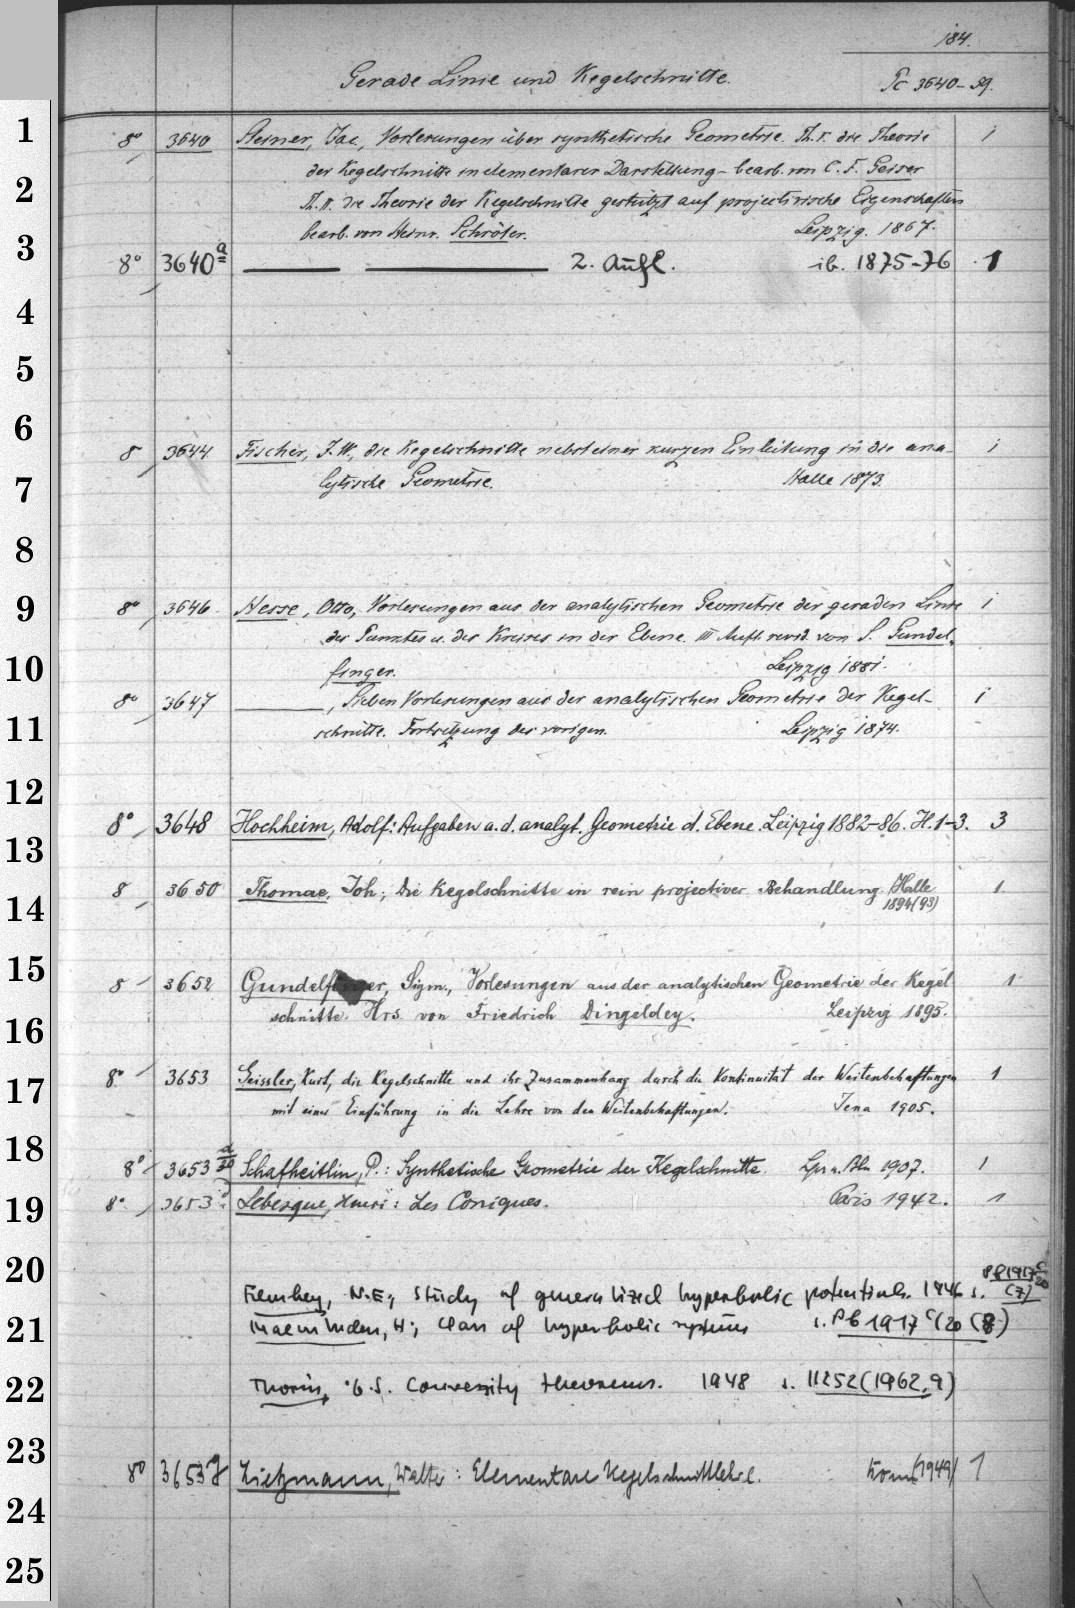 184.
Gerade Linie und Kegelschnitte. Pc 3640-59.
1
8° 3640 Steiner, Jac., Vorlesungen über synthetische Geometrie. Th. I. die Theorie 1
der Kegelschnitte in elementarer Darstellung - bearb. von C. F. Geiser
2
Th. II. die Theorie der Kegelschnitte gestützt auf projectivische Eigenschaften
bearb. von Heinr. Schröter. Leipzig. 1867.
3
8° 3640a 2. Aufl. ib. 1875-76 1
4
5
6
8 3644 Fischer, F. W., die Kegelschnitte nebst einer kurzen Einleitung in die ana- 1
7
lytische Geometrie. Halle 1873.
8
9
8° 3646 Hesse, Otto, Vorlesungen aus der analytischen Geometrie der geraden Linie 1
des Punktes u. des Kreises in der Ebene. III Aufl. revid. von S. Gundel-
10
finger. Leipzig 1881.
8° 3647 , Sieben Vorlesungen aus der analytischen Geometrie der Kegel- 1
11
schnitte. Fortsetzung der vorigen. Leipzig 1874.
12
8° 3648 Hochheim, Adolf: Aufgaben a. d. analyt. Geometrie d. Ebene. Leipzig 1882-86. H. 1-3. 3
13
8 3650 Thomae, Joh., Die Kegelschnitte in rein projectiver Behandlung. Halle 1
14
1894(93)
15
8 3652 Gundelfinger, Sigm., Vorlesungen aus der analytischen Geometrie der Kegel 1
schnitte. Hrs. von Friedrich Dingeldey. Leipzig 1895.
16
8° 3653 Geissler, Kurt, die Kegelschnitte und ihr Zusammenhang durch die Kontinuität der Weitenbehaftungen 1
17
mit einer Einführung in die Lehre von den Weitenbehaftungen. Jena 1905.
18
8° 3653 a/20 Schafheitlin, P.: Synthetische Geometrie der Kegelschnitte. Lpz u. Bln 1907. 1
8° 3653 Lebesgue, Henri: Les Coniques. Paris 1942. 1
19
20
1917 c/20
N.E.; Study of generalized hyperbolic potentials. 1946 s. (7)
21
H; Class of hyperbolic systems s. Pb 1917 c/20 (8)
22
Thorin, G.S. Convexity theorems. 1948 s. 11252 (1962,9)
23
8° 3653g Lietzmann, Walter: Elementare Kegelschnittlehre. (1949) 1
24
25